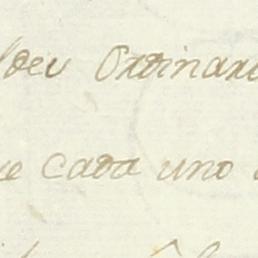 ldeu Ordinari
e cada uno